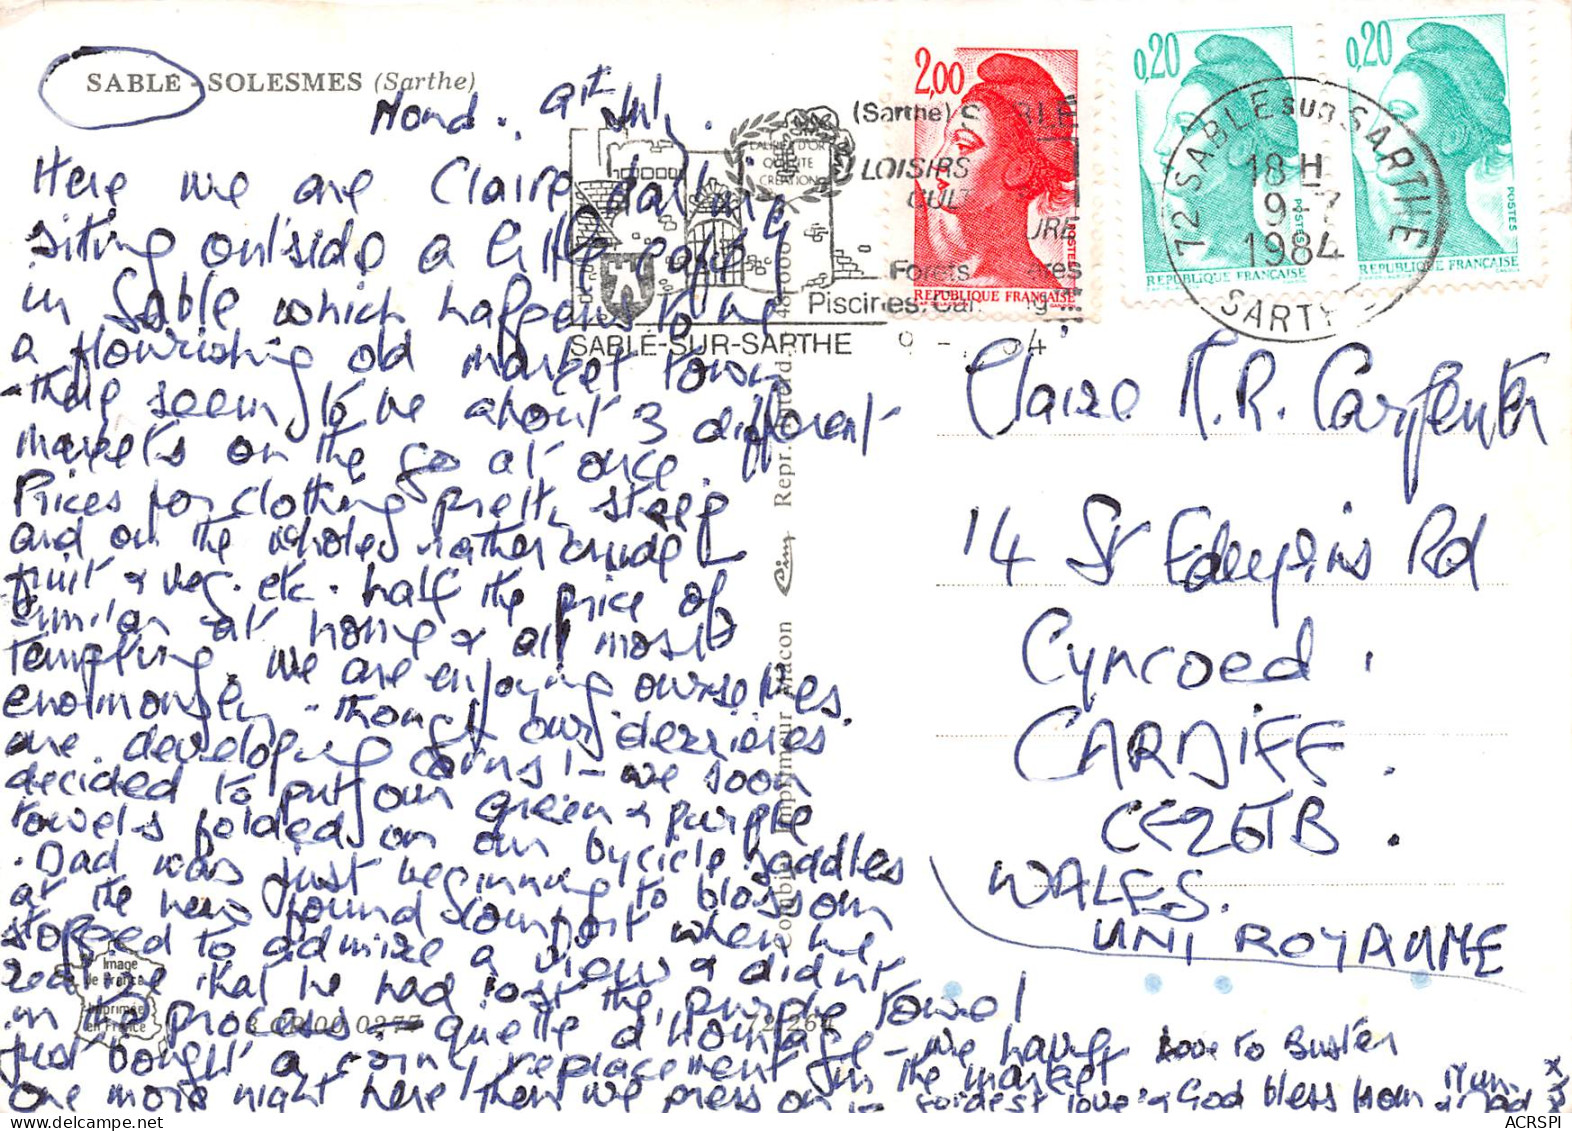 SABLÉ - SOLESMES (Sarthe)
Mond. 9th Jul.
Here we are Claire darling
sitting outside a little cafe
in Sable which happens to be
a flourishing old market town
- there seem to be about 3 different
markets on the go at once.
Prices for clothing pretty steep
and on the whole rather crude
fruit & veg. etc. half the price of
similar at home & all most
tempting. We are enjoying ourselves
enormously - though our derrieres
are developing corns! - we soon
decided to put our green & purple
towels folded on our bycicle saddles
. Dad was just beginning to blossom
at the new found comfort when he
stopped to admire a view & didnt
realize that he had lost the purple towel
in the process - quelle dommage - we have
just bought a corny replacement in the market
one more night here then we press on - fondest love & God bless from Mum & Dad x x x
Love to Buster
Image
de France
Imprimée
en France
3 CP 00 0277
72-264
Combier Imprimeur Macon Cim Repr.
48.000
LAURIER D'OR
QUALITE
CREATION
SABLÉ-SUR-SARTHE
(Sarthe) SABLE
LOISIRS
CULTURE
Forets
Piscines. Camping...
2,00
POSTES
REPUBLIQUE FRANÇAISE
0,20
POSTES
REPUBLIQUE FRANÇAISE
0,20
POSTES
REPUBLIQUE FRANÇAISE
72 SABLE SUR SARTHE
18 H
9-7
1984
SARTHE
Claire M.R. Carpenter
14 St Edeyrins Rd
Cyncoed.
CARDIFF.
CF26TB.
WALES.
UNI ROYAUME
ACRSPI